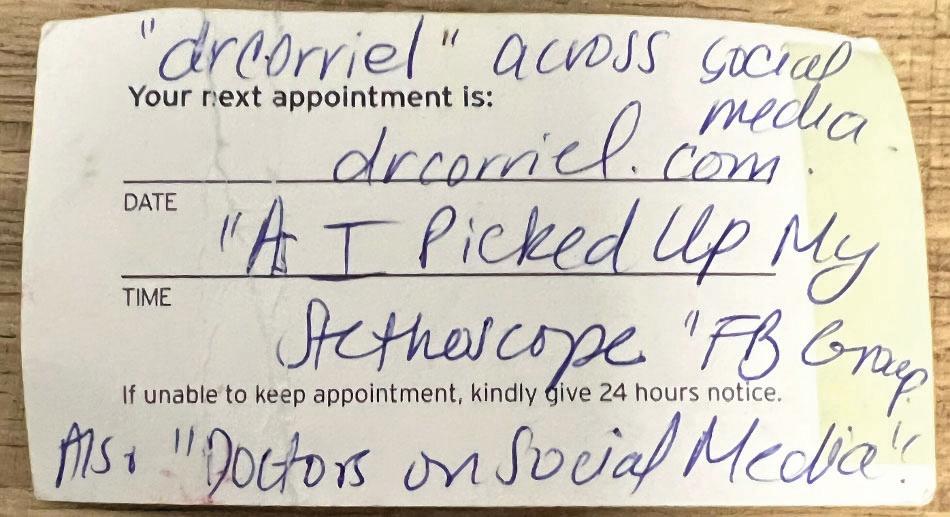 "drcorriel" across social
Your next appointment is:
media.
drcorriel.com
DATE
"A I Picked Up My
TIME
Stethoscope "FB Group.
If unable to keep appointment, kindly give 24 hours notice.
Also "Doctors on Social Media".